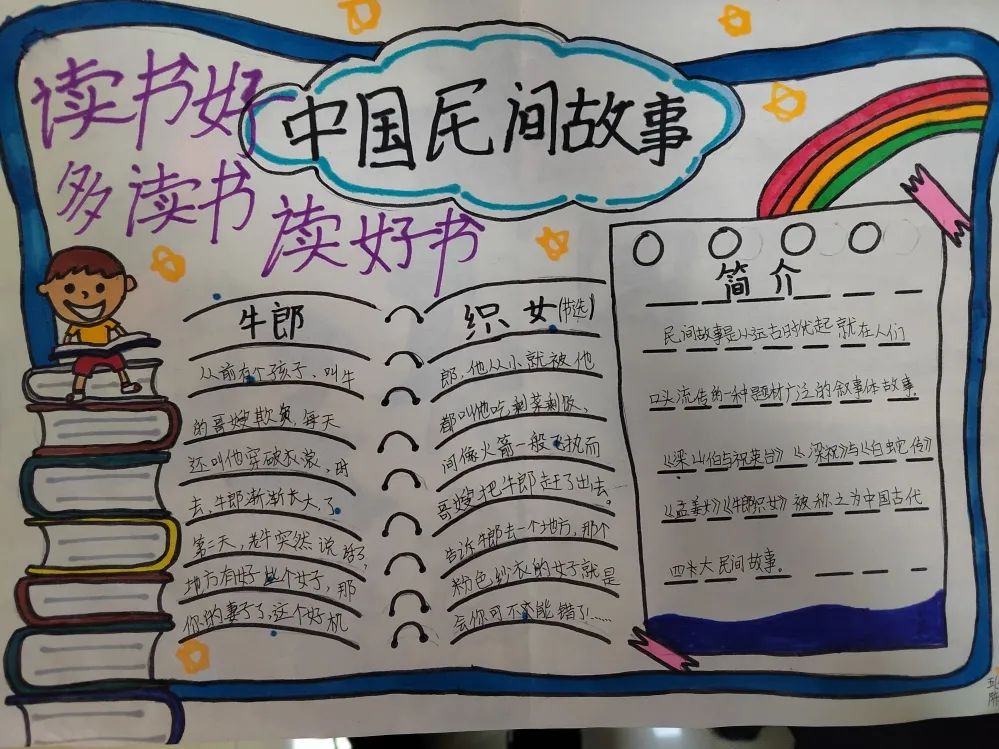 读书好
多读书
读好书
中国民间故事
牛郎
织女(节选)
从前有个孩子,叫牛郎,他从小就被他
的哥嫂欺负,每天都叫他吃剩菜剩饭、
还叫他穿破衣裳,时间像火箭一般飞执而
去,牛郎渐渐长大,了哥嫂把牛郎赶了出去。
第二天,老牛突然说话了,告诉牛郎去一个地方,那个
地方有好些个女子,那粉色纱衣的女子就是
你的妻子了,这个好机会你可不能错了……
简介
民间故事是从远古时代起就在人们
口头流传的一种题材广泛的叙事体故事。
《梁山伯与祝英台》《梁祝》与《白蛇传》
《孟姜女》《牛郎织女》被称之为中国古代
四大民间故事。